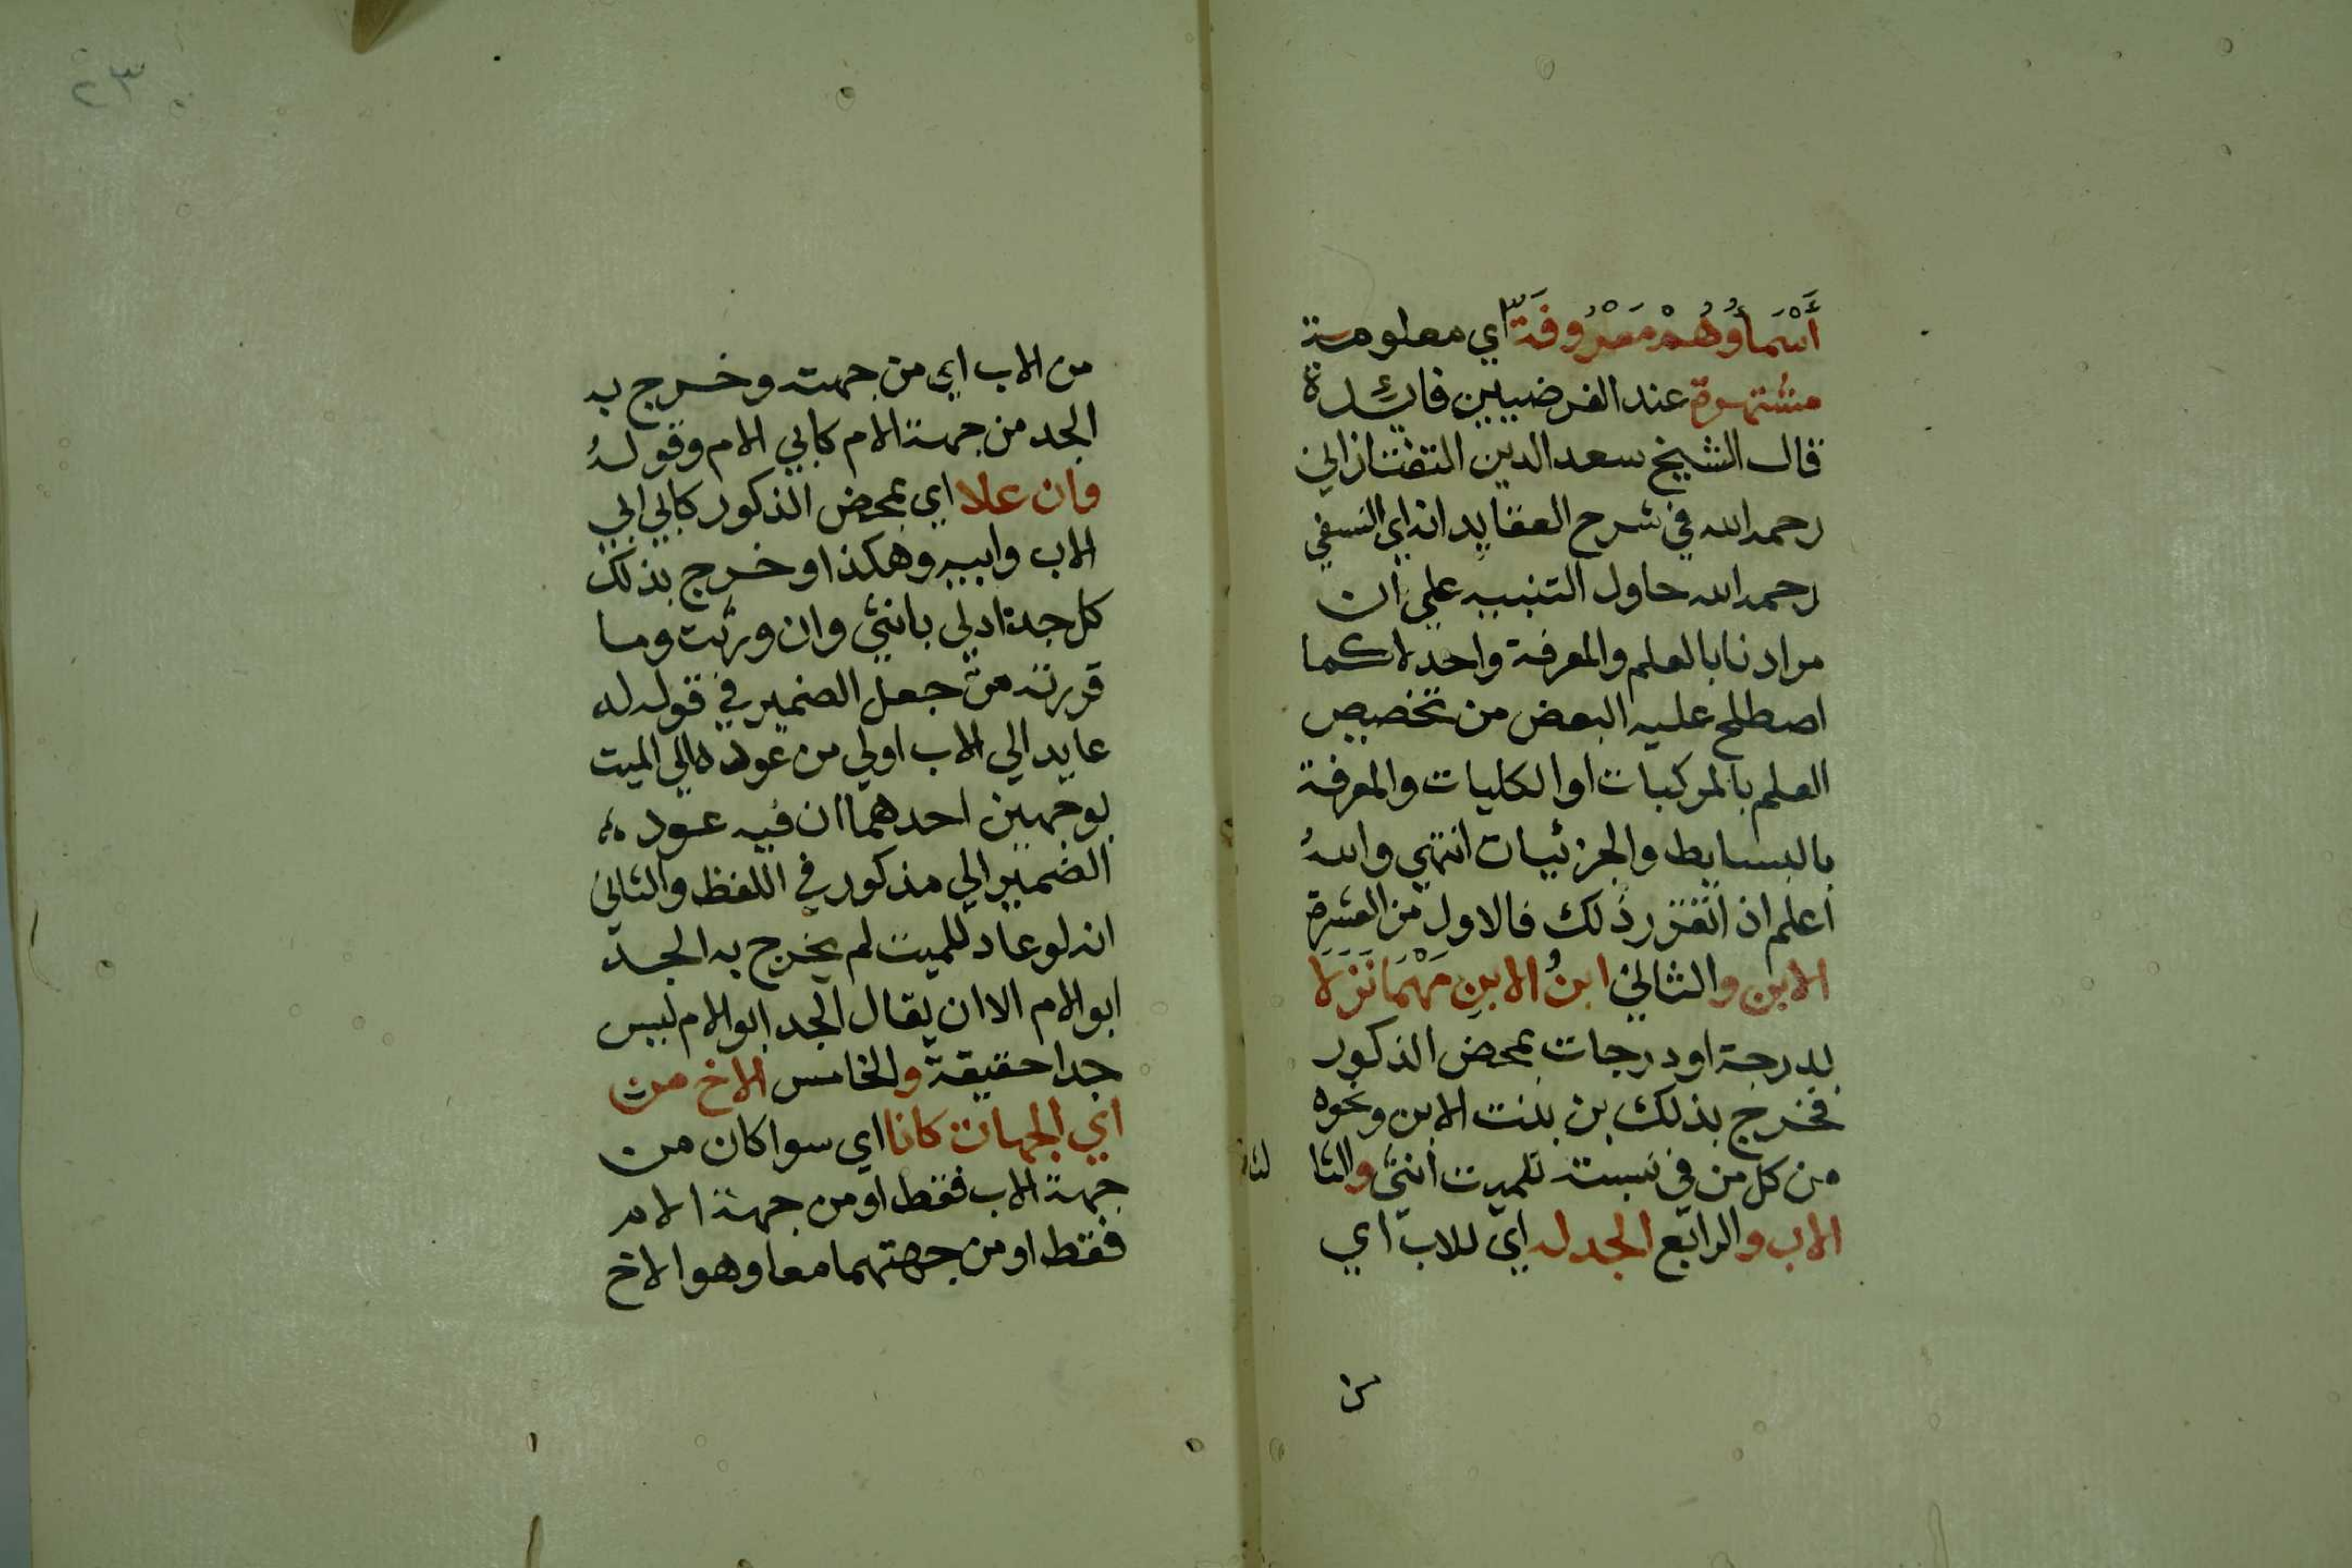 أَسْمَاؤُهُمْ مَعْرُوفَةٌ اي معلومة
مشتهرة عند الفرضيين فايدة
قال الشيخ سعد الدين التفتازاني
رحمه الله في شرح العقايد انه اي النسفي
رحمه الله حاول التنبيه علي ان
مرادنا بالعلم والمعرفة واحد لا كما
اصطلح عليه البعض من تخصيص
العلم بالمركبات او الكليات والمعرفة
بالبسايط والجزئيات انتهي واللهُ
اعلم اذ اتقرر ذلك فالاول من العشرة
الابن والثاني ابنُ الابنِ مَهْمَا نَزَلَا
بدرجة او درجات بمحض الذكور
فخرج بذلك بن بنت الابن ونحوه
من كل من في نسبته للميت انثي والثا
لث
الاب والرابع الجد له اي للاب اي
من
٢٣
من الاب اي من جهته وخرج به
الجد من جهة الام كابي الام وقولهُ
وان علا اي بمحض الذكور كابي ابي
الاب وابيه وهكذا وخرج بذلك
كل جدة ادلي بانثي وان ورثت وما
قررته من جعل الضمير في قوله له
عايد الي الاب اولي من عوده الي الميت
بوجهين احدهما ان فيه عود
الضمير الي مذكور في اللفظ والثاني
انه لو عاد للميت لم يخرج به الجد
ابو الام الا ان يقال الجد ابو الام ليس
جدا حقيقة والخامس الاخ من
اي الجهات كانا اي سوا كان من
جهة الاب فقط او من جهة الام
فقط او من جهتهما معا وهو الاخ